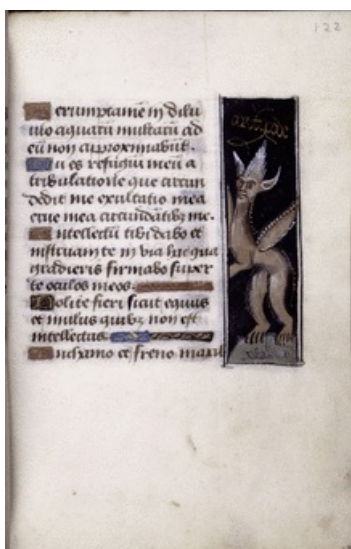 122
Verumptamē in dilu
uio aquarū multarū ad
eū non approximabūt.
Tu es refugiū meū a
tribulatione que circun
dedit me exultatio mea
erue me a circundātibus me.
Intellectū tibi dabo et
instruam te in via hac qua
gradieris firmabo super
te oculos meos.
Nolite fieri sicut equus
et mulus quibꝫ non est
intellectus
In chamo et freno maxil